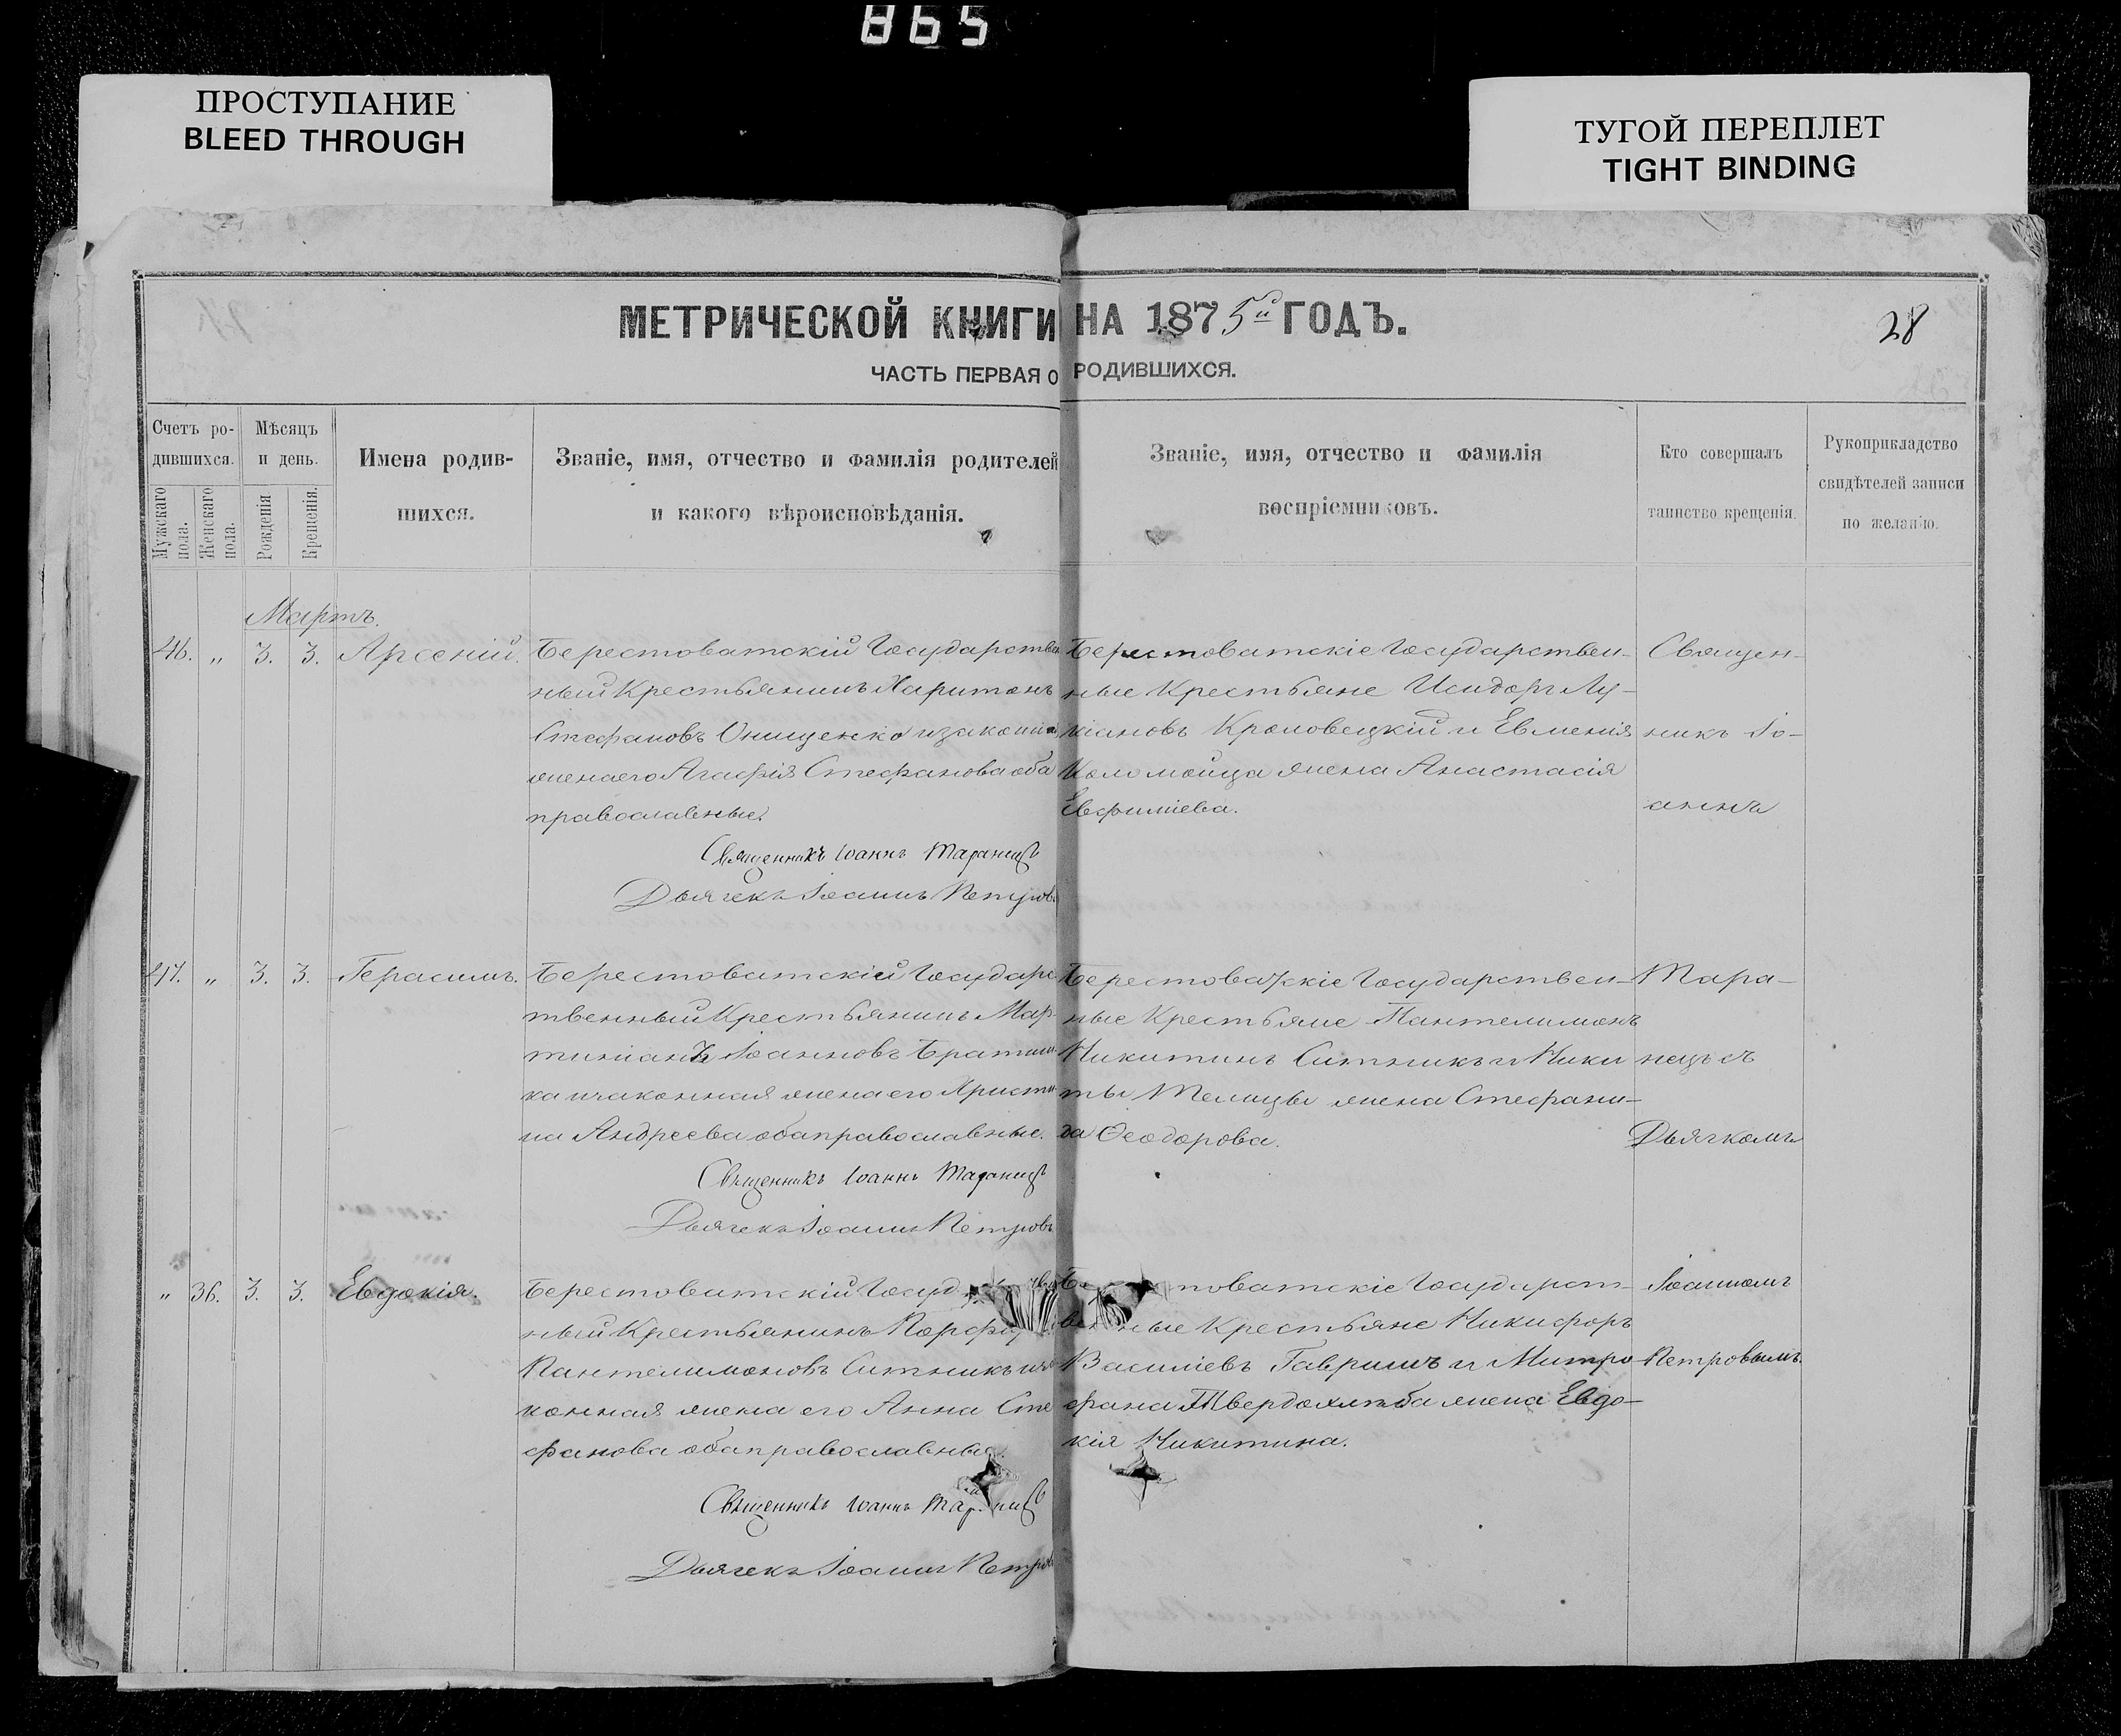 865
ПРОСТУПАНИЕ
BLEED THROUGH
ТУГОЙ ПЕРЕПЛЕТ
TIGHT BINDING
МЕТРИЧЕСКОЙ КНИГИ НА 1875й ГОДЪ.
28
ЧАСТЬ ПЕРВАЯ О РОДИВШИХСЯ.
Счетъ ро-
дившихся.
Мужскаго пола.
Женскаго пола.
Мѣсяцъ
и день.
Рожденія
Крещенія.
Имена родив-
шихся.
Званіе, имя, отчество и фамилія родителей
и какого вѣроисповѣданія.
Званіе, имя, отчество и фамилія
воспріемниковъ.
Кто совершалъ
таинство крещенія.
Рукоприкладство
свидѣтелей записи
по желанію.
Мартъ.
46. „ 3. 3. Арсеній.
Берестоватскій Государствен
ный Крестьянинъ Харитонъ
Стефановъ Онищенко и законна
жена его Агафія Стефанова оба
православные.
Священникъ Іоаннъ Таранецъ
Дьячекъ Іоаннъ Петровъ
Берестоватскіе Государствен-
ные Крестьяне Исидоръ Лу-
кіановъ Кроловецкій и Евменія
Коломойца жена Анастасія
Евфиміева.
Священ-
никъ Іо-
аннъ
47. „ 3. 3. Герасимъ.
Берестоватскій Государс
твенный Крестьянинъ Мар-
тиніанъ Іоанновъ
ка и законная жена его Христи-
на Андреева оба православные.
Священникъ Іоаннъ Таранецъ
Дьячекъ Іоаннъ Петровъ
Берестоватскіе Государствен-
ные Крестьяне Пантелимонъ
Никитинъ Ситникъ и Ники
ты Телицы жена Стефани-
да Ѳеодорова.
Тара-
нецъ съ
Дьячкомъ
„ 36. 3. 3. Евдокія.
Берестоватскій Госуд
ный Крестьянинъ Порфи
Пантелимоновъ Ситникъ и за
конная жена его Анна Сте
фанова оба православные.
Священникъ Іоаннъ
Дьячекъ Іоаннъ Петровъ
товатскіе Государст-
венные Крестьяне Никифоръ
Василіевъ Гавришъ и Митро
фана Твердохлѣба жена Евдо-
кія Никитина.
Іоанномъ
Петровымъ.